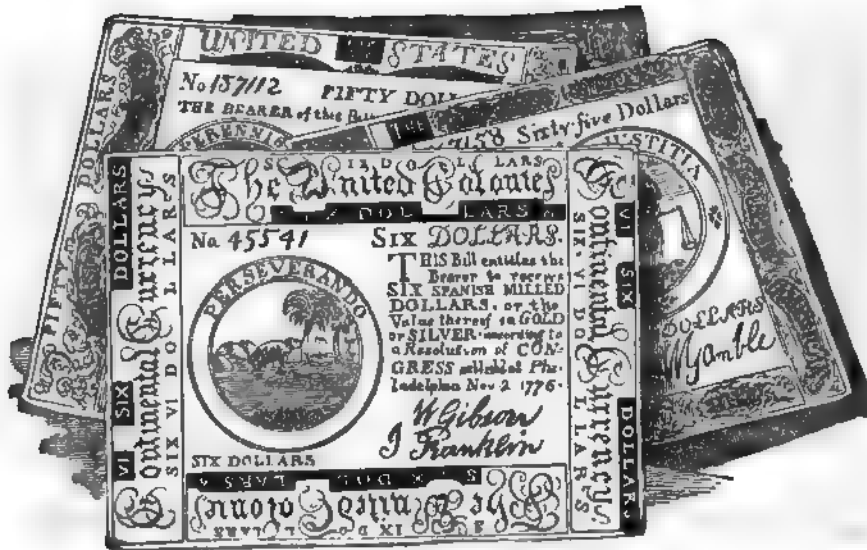 UNITED STATES
No 157112 FIFTY DOLL
THE BEARER of this Bill
PERENNIS
DOLLARS
FIFTY
7158 Sixty-five Dollars
JUSTITIA
DOLLARS
W Gamble
SIX DOLLARS
The United Colonies
SIX DOLLARS
No 45541 SIX DOLLARS.
THIS Bill entitles the
Bearer to receive
SIX SPANISH MILLED
DOLLARS, or the
Value thereof in GOLD
or SILVER, according to
a Resolution of CON-
GRESS published at Phi-
ladelphia Nov 2 1776.
W Gibson
J Franklin
PERSEVERANDO
SIX DOLLARS
VI SIX DOLLARS
Continental Currency
SIX VI DO LLARS
Continental Currency.
SIX VI DO LLARS
VI SIX DOLLARS
SIX DOLLARS
The United Colonies
SIX DOLLARS